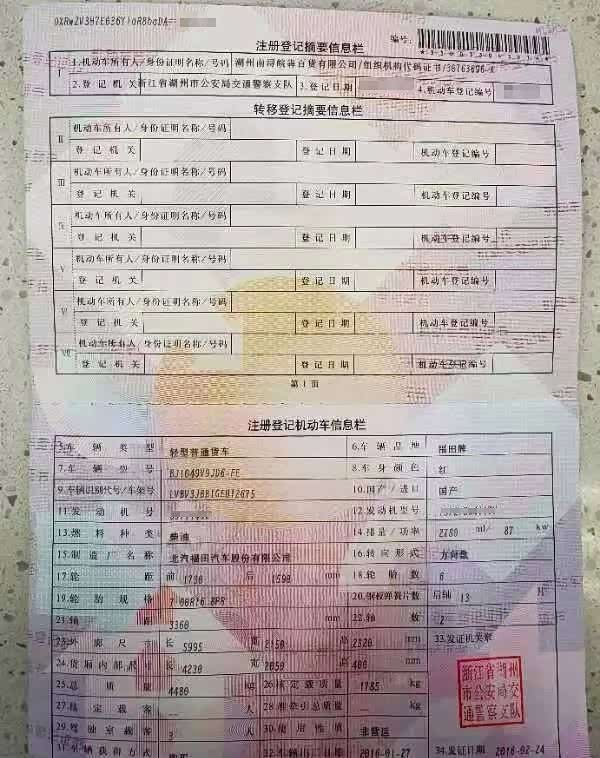 注册登记摘要信息栏
编号:
Ⅰ 1.机动车所有人/身份证明名称/号码 湖州南浔皖海百货有限公司/组织机构代码证书/
2.登记机关 浙江省湖州市公安局交通警察支队 3.登记日期 4.机动车登记编号
转移登记摘要信息栏
Ⅱ 机动车所有人/身份证明名称/号码
登记机关 登记日期 机动车登记编号
Ⅲ 机动车所有人/身份证明名称/号码
登记机关 登记日期 机动车登记编号
机动车所有人/身份证明名称/号码
登记机关 登记日期 机动车登记编号
Ⅴ 机动车所有人/身份证明名称/号码
登记机关 登记日期 机动车登记编号
Ⅵ 机动车所有人/身份证明名称/号码
登记机关 登记日期 机动车登记编号
Ⅶ 机动车所有人/身份证明名称/号码
登记机关 登记日期 机动车登记编号
第1页
注册登记机动车信息栏
5.车辆类型 轻型普通货车 6.车辆品牌 福田牌
7.车辆型号 BJ1049V9JD6-FE 8.车身颜色 红
9.车辆识别代号/车架号 10.国产/进口 国产
11.发动机号 12.发动机型号
13.燃料种类 柴油 14.排量/功率 2780 ml/ 87 kw
15.制造厂名称 北汽福田汽车股份有限公司 16.转向形式 方向盘
17.轮距 前 1730 后 1590 mm 18.轮胎数 6
19.轮胎规格 7.00R16 8PR 20.钢板弹簧片数 后轴 13 片
21.轴距 3360 mm 22.轴数 2
23.外廓尺寸 长 5995 宽 2150 高 2320 mm 33.发证机关章
24.货厢内部尺寸 长 4230 宽 2050 高 400 mm
25.总质量 4480 kg 26.核定载质量 1785 kg
27.核定载客 — 人 28.准牵引总质量 — kg
29.驾驶室载客 3 人 30.使用性质 非营运
31.车辆获得方式 购买 32.车辆出厂日期 2016-01-27 34.发证日期 2016-02-24
浙江省湖州
市公安局交
通警察支队